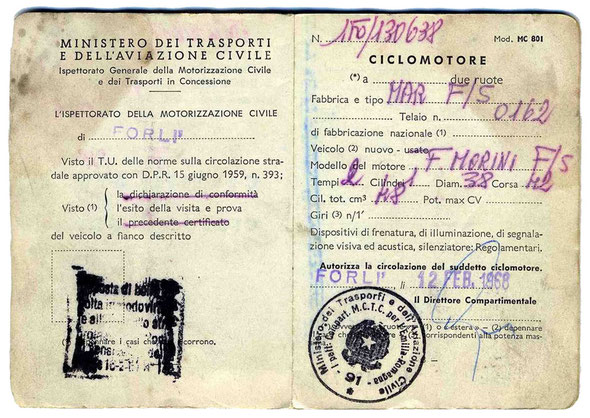 MINISTERO DEI TRASPORTI
E DELL'AVIAZIONE CIVILE
Ispettorato Generale della Motorizzazione Civile
e dei Trasporti in Concessione
L'ISPETTORATO DELLA MOTORIZZAZIONE CIVILE
di FORLI'
Visto il T.U. delle norme sulla circolazione stra-
dale approvato con D.P.R. 15 giugno 1959, n. 393;
la dichiarazione di conformità
Visto (1) l'esito della visita e prova
il precedente certificato
del veicolo a fianco descritto
i casi che corrono.
N. 150/130638 Mod. MC 801
CICLOMOTORE
(*) a due ruote
Fabbrica e tipo MAR F/S
Telaio n. 0162
di fabbricazione nazionale (1)
Veicolo (2) nuovo - usato
Modello del motore F MORINI F/S
Tempi 2 Cilindri 1 Diam. 38 Corsa 42
Cil. tot. cm³ 48 Pot. max CV
Giri (3) n/1'
Dispositivi di frenatura, di illuminazione, di segnala-
zione visiva ed acustica, silenziatore: Regolamentari.
Autorizza la circolazione del suddetto ciclomotore.
FORLI' li 12 FEB. 1968
Il Direttore Compartimentale
Ministero dei Trasporti e dell'Aviazione Civile
M.C.T.C. per l'Emilia-Romagna
91
(2) Depennare
corrispondenti alla potenza mas-